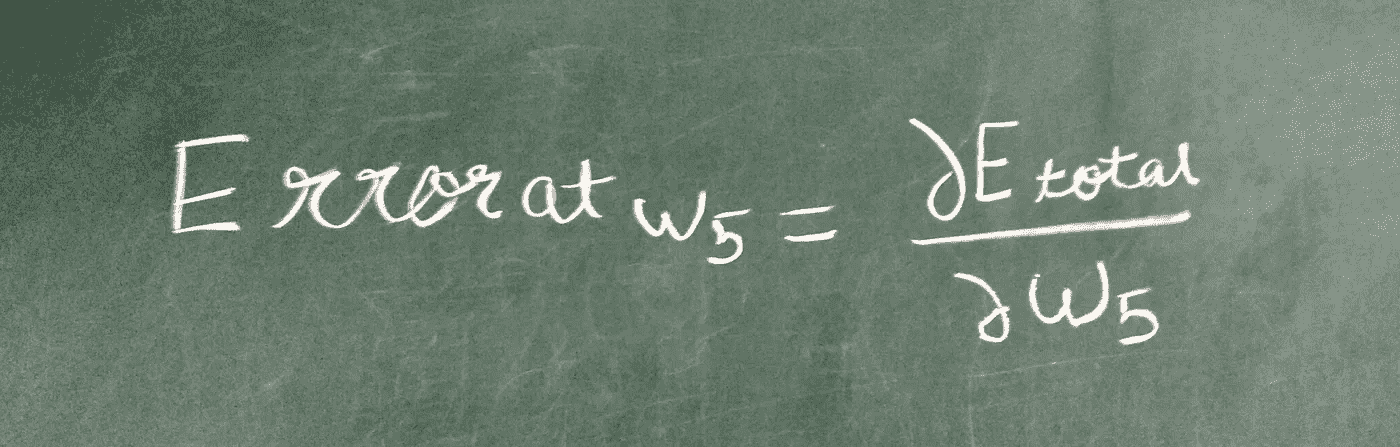 Error at w5 = ∂E total / ∂w5